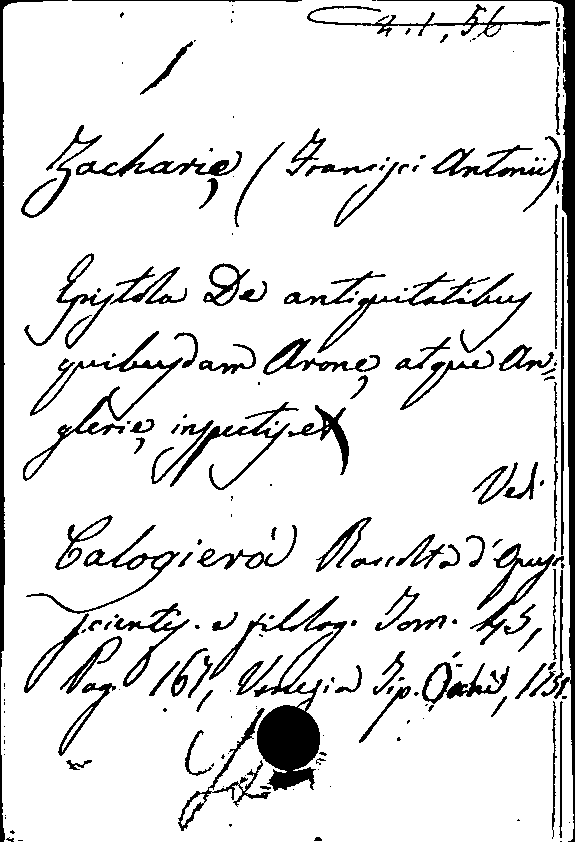 2.1.56
Zacharię (Francisci Antonii)
Epistola De antiquitatibus
quibusdam Aronę atque An=
glerię inspectis. et
Vedi
Calogierá Raccolta d'Opusc.
scientif. e filolog. Tom. 45,
Pag. 167, Venezia Tip. Occhi, 1751.